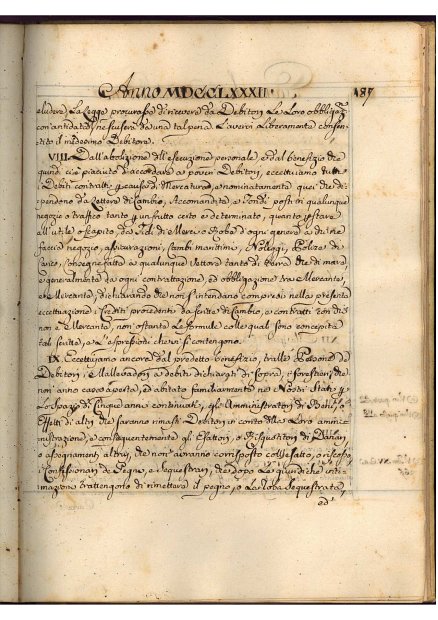 Anno MDCCLXXXII. 187
eludere la Legge procurasse di ricevere da Debitori le Loro obbligaz.
con antidata, ne scuserà da una tal pena l'avervi liberamente consen-
tito il medesimo Debitore.
VIII. Dall'abolizione dell'esecuzione personale, e dal benefizio che
quindi ci è piaciuto di accordare a poveri Debitori, eccettuiamo tutti
i Debiti contratti per causa di Mercatura, e nominatamente quei che di-
pendono da Lettere di Cambio, Accomandite, e Fondi posti in qualunque
negozio o traffico tanto per un frutto certo e determinato, quanto per stare
all'utile, o scapito, da Fidi di Merci, o Robe d'ogni genere da chi ne
faccia negozio, assicurazioni, cambi marittimi, Noleggi, Polize di
Carico, consegne fatte a qualunque Vettore tanto di Terra che di mare
e generalmente da ogni contrattazione, ed obbligazione tra Mercante,
e Mercante, dichiarando che non s'intendano compresi nella presente
eccettuazione i Crediti procedenti da scritte di Cambio, o contratti con chi
non è Mercante, non ostante le formule colle quali sono concepite
tali scritte, o le espressioni che vi si contengono.
IX. Eccettuiamo ancora dal predetto benefizio, tralle Persone de
Debitori, e Mallevadori a debiti dichiarati di sopra, i forestieri, che
non anno casa aperta, ed abitato familiarmente ne' Nostri Stati per
lo spazio di Cinque anni continuati, gli Amministratori di Beni, o
Effetti di altri che saranno rimasti Debitori in conto della Loro ammi-
nistrazione, e conseguentemente gli Esattori, o Riscuotitori di Danari,
o assegnamenti altrui, che non averanno corrisposto coll'esatto, o riscosso,
i Commissionari di Pegni, e Sequestrari, che dopo le giuridiche inti-
mazioni trattengono di rimettere il pegno, o la roba sequestrata,
ed